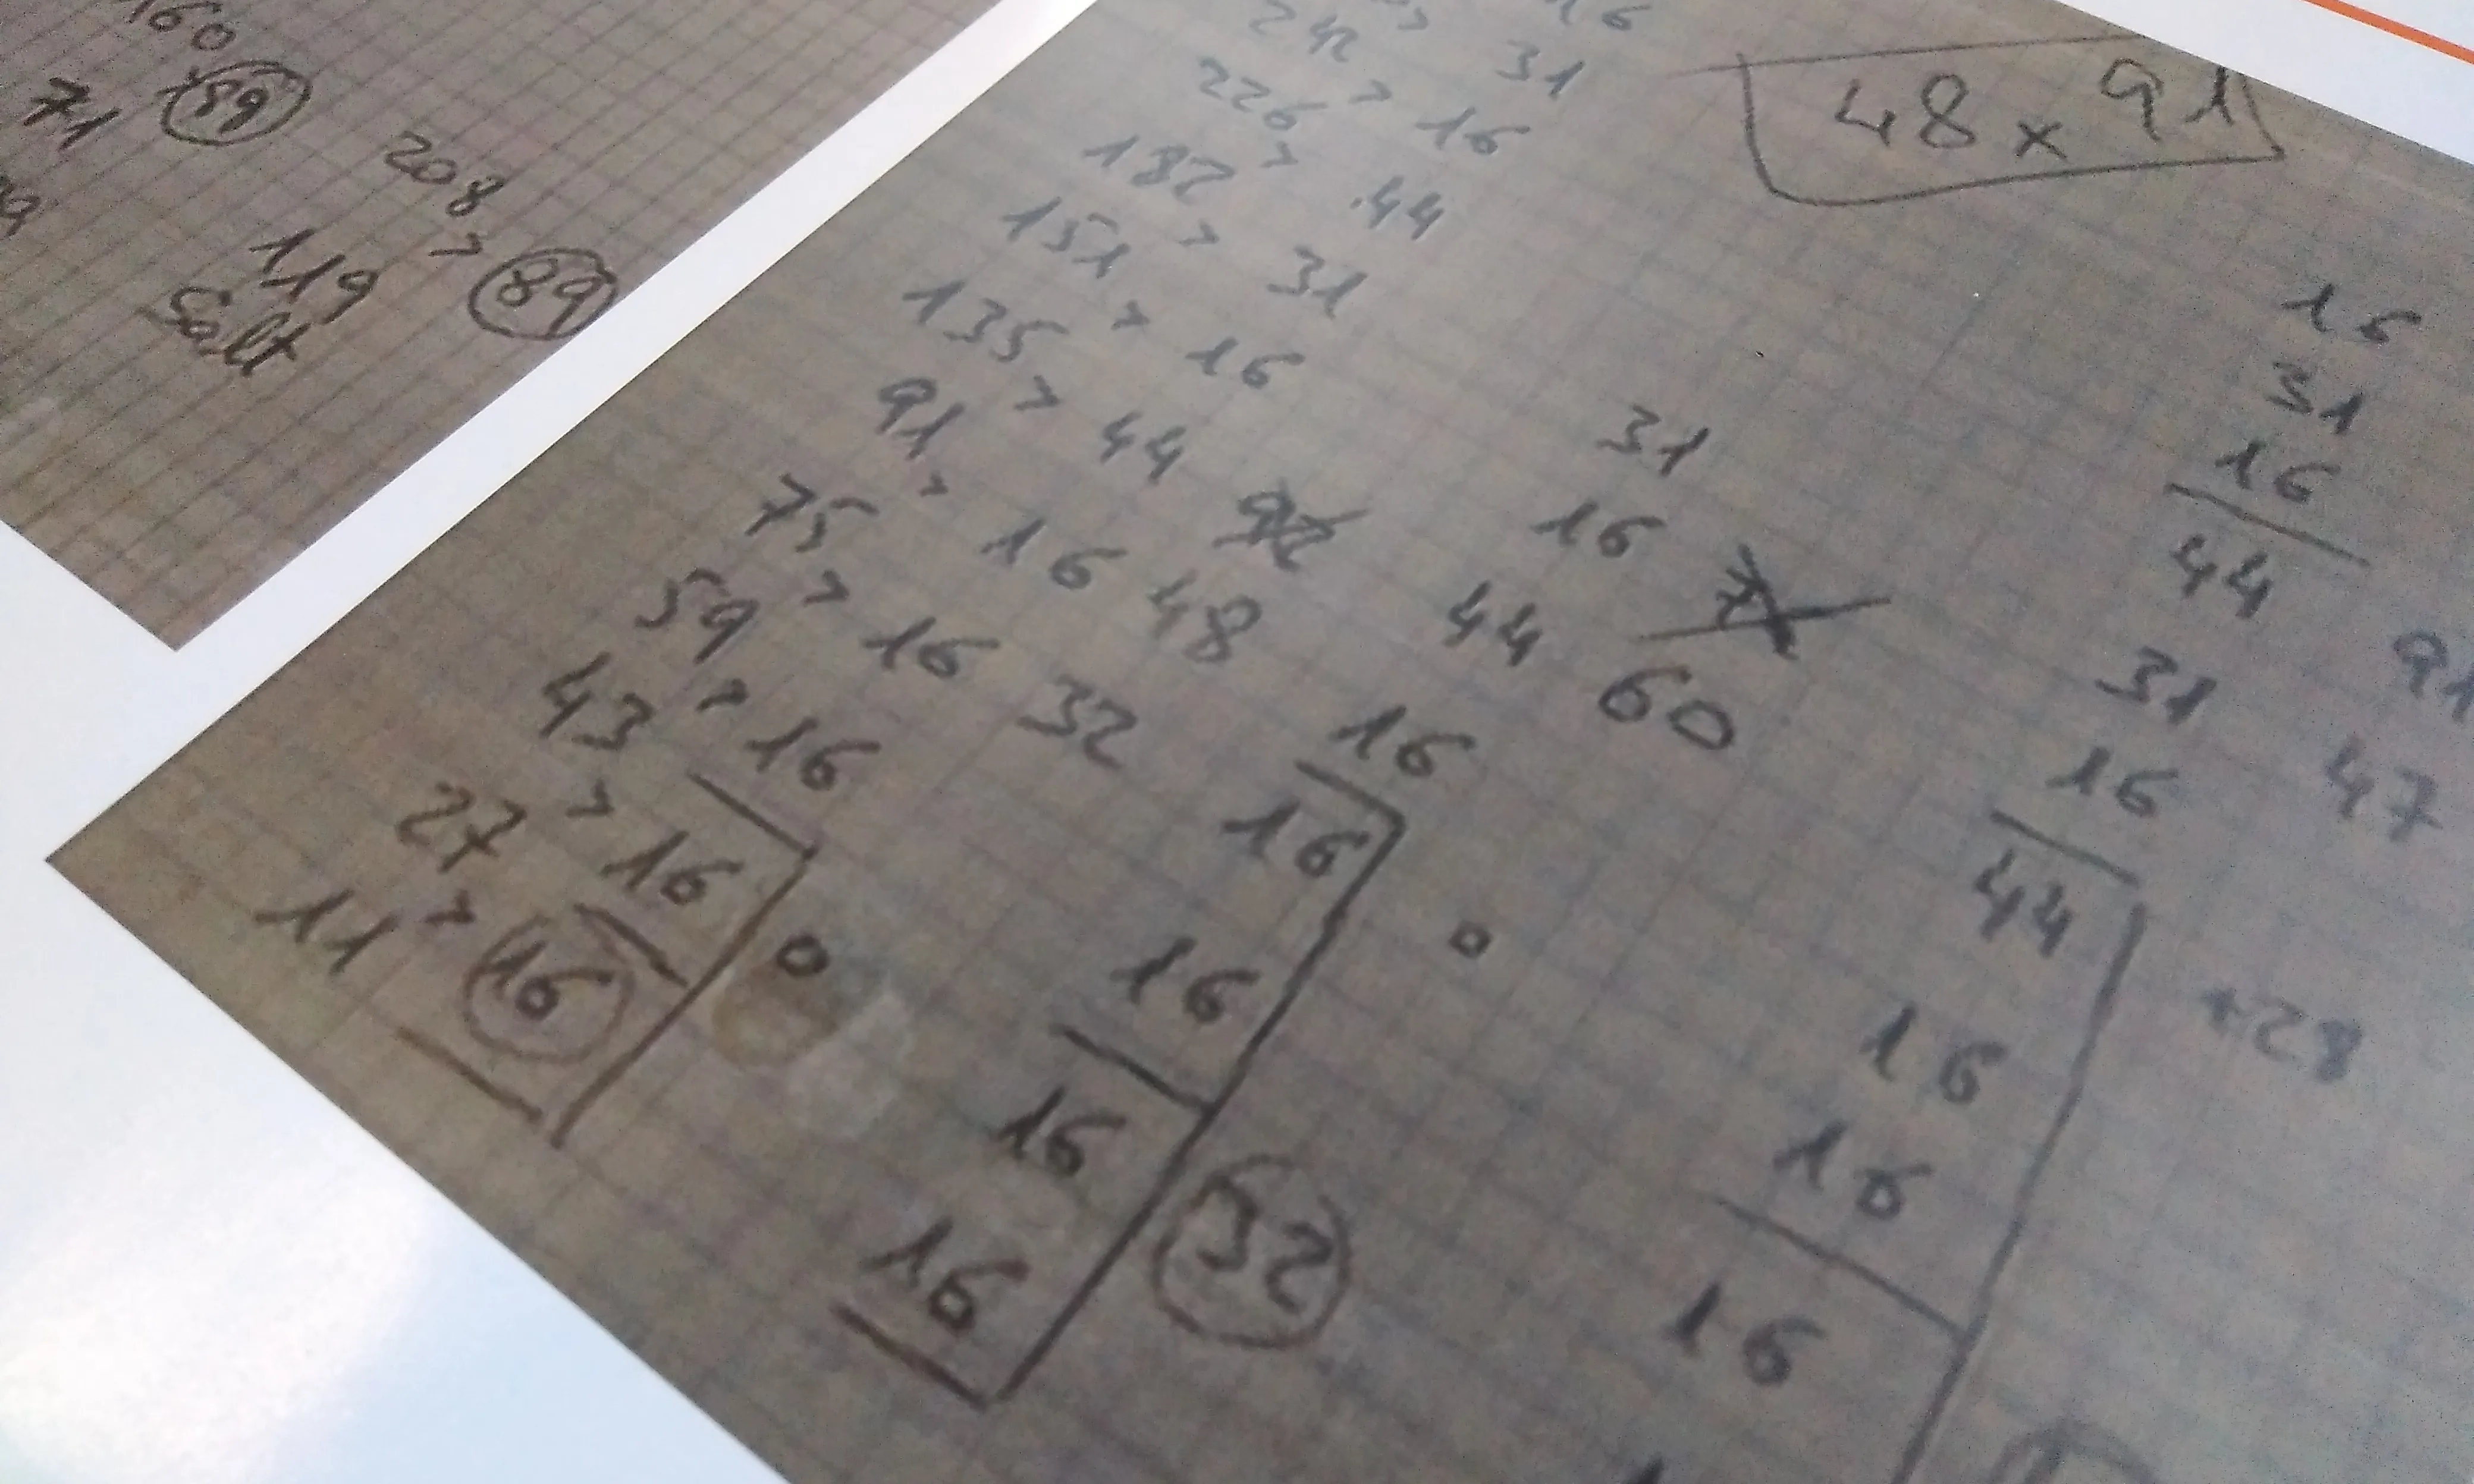 160
71 59
208
119 > 89
Salt
48 x 91
16
242 > 31
226 > 16
182 > 44
151 > 31
135 > 16
91 > 44
75 > 16 48
59 > 16 32
43 > 16
27 > 16
11 > 16
0
31
16
44 60
16
16
16
16
16
32
0
16
31
16
44
31
16
44
16
16
16
91
47
+28